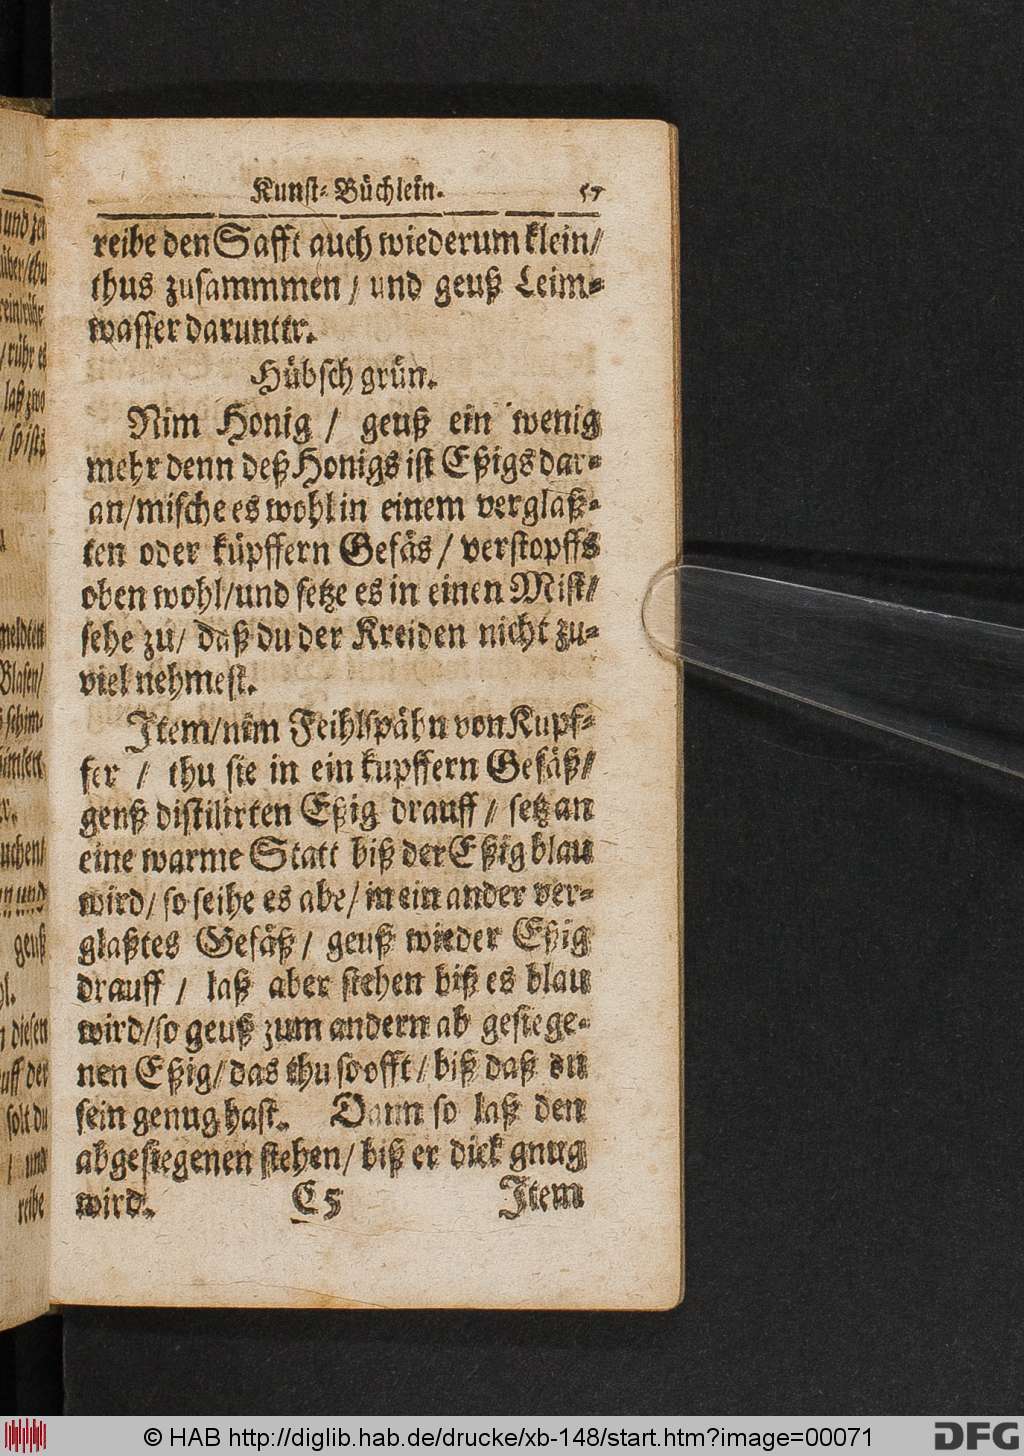 Kunst-Büchlein. 57
reibe den Safft auch wiederum klein/
thus zusammmen / und geuß Leim-
wasser darunter.
Hübsch grün.
Nim Honig / geuß ein wenig
mehr denn deß Honigs ist Eßigs dar-
an/mische es wohl in einem verglaß-
ten oder küpffern Gefäs / verstopffs
oben wohl/und setze es in einen Mist/
sehe zu/ daß du der Kreiden nicht zu-
viel nehmest.
Item/nim Feihlspähn von Kupf-
fer / thu sie in ein kupffern Gefäß/
genß distilirten Eßig drauff / setz an
eine warme Statt biß der Eßig blau
wird/ so seihe es abe/ in ein ander ver-
glaßtes Gefäß / geuß wieder Eßig
drauff / laß aber stehen biß es blau
wird/so geuß zum andern ab gesiege-
nen Eßig/das thu so offt/ biß daß du
sein genug hast. Dann so laß den
abgesiegenen stehen/ biß er dick gnug
wird. E 5 Item
und zer
über/thu
rein/rühr
/rühr es
laß zwo
/ so ists
meldten
Blasen/
uchen/
n und
geuß
n diesen
uff der
solt du
/ und
reibe
© HAB http://diglib.hab.de/drucke/xb-148/start.htm?image=00071
DFG